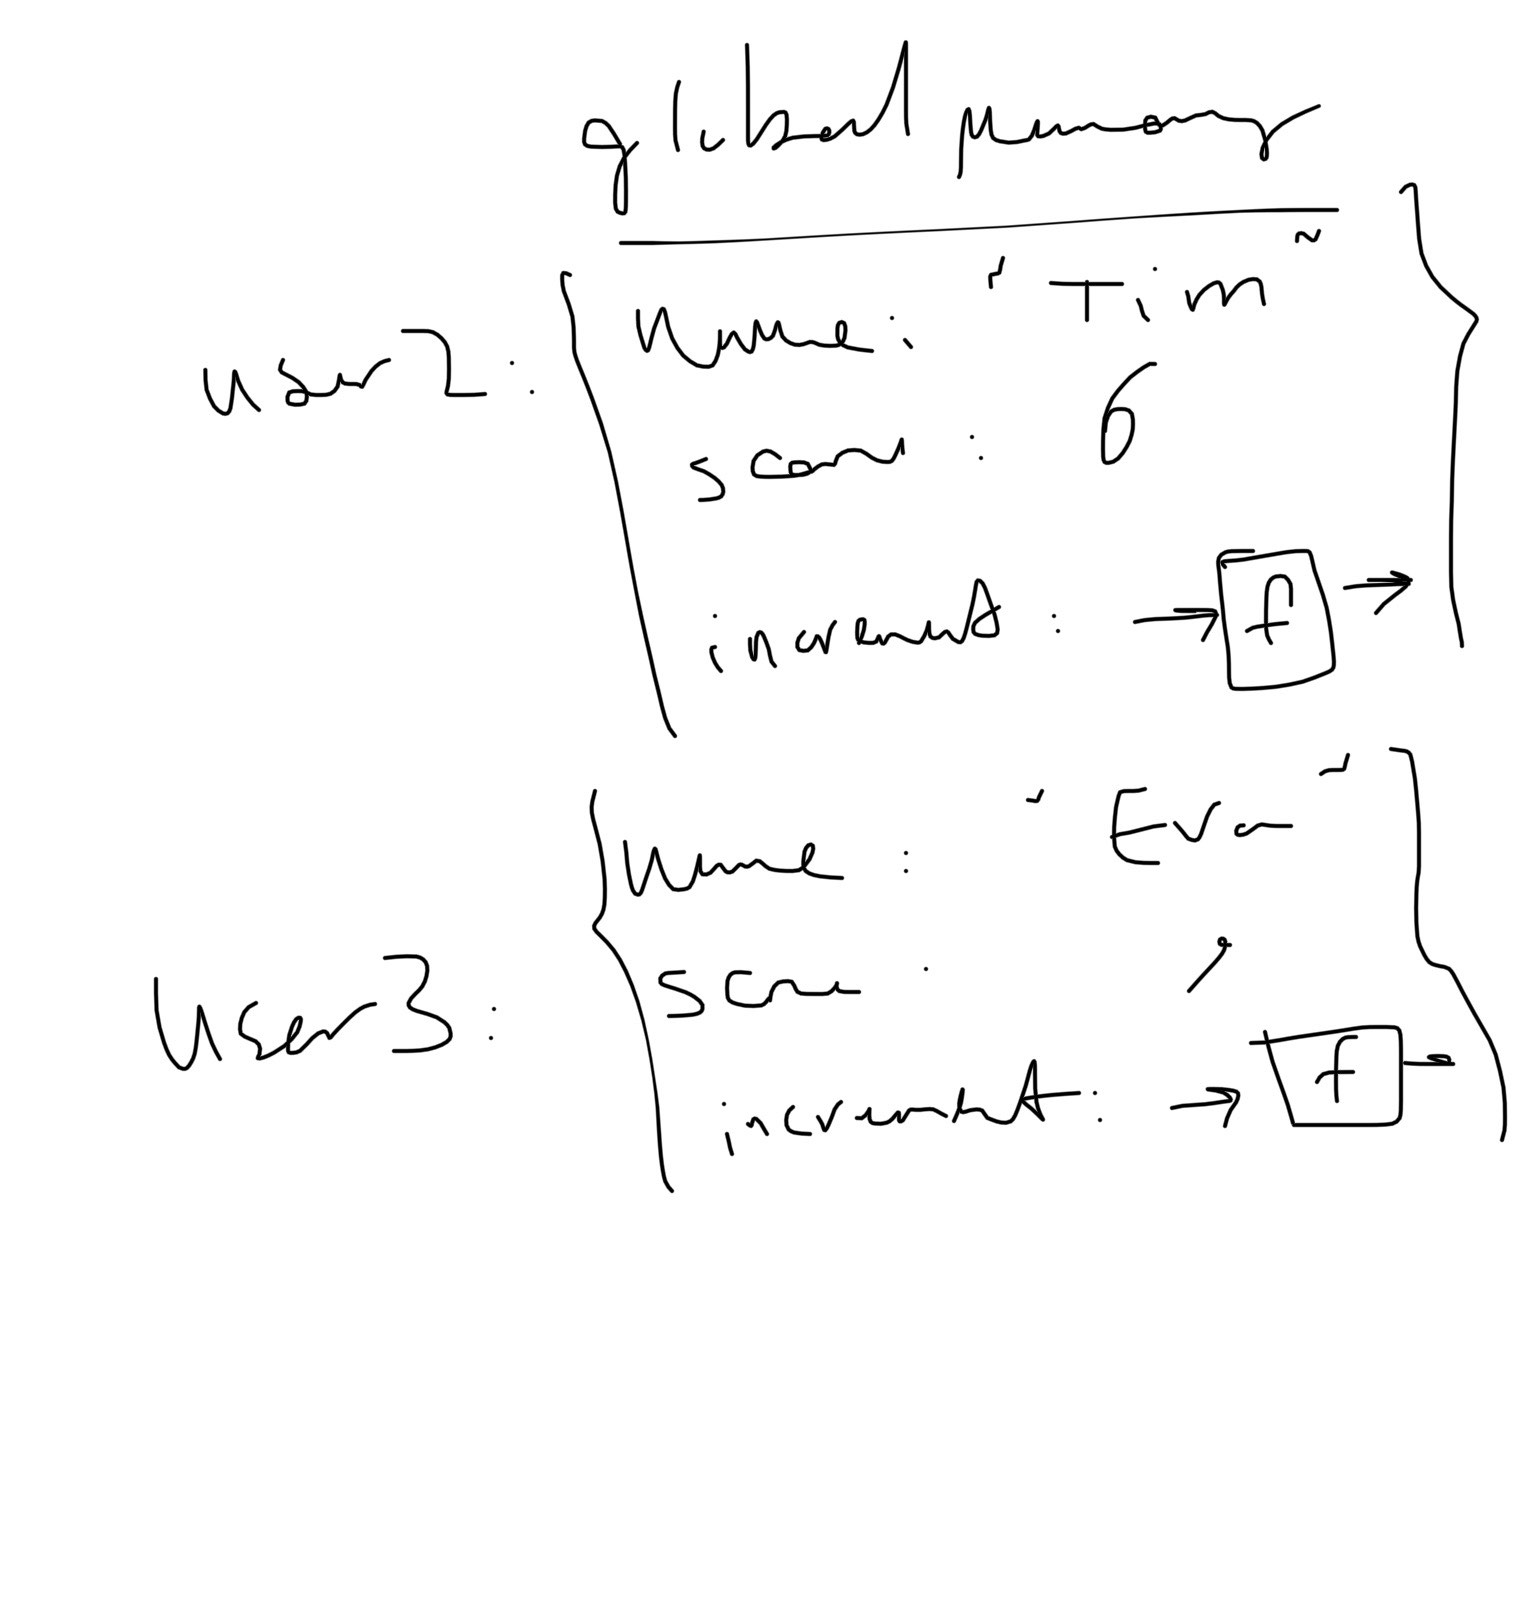 global Memory
user2: { Name: "Tim"
score: 6
increment: → f → }
user3: { Name: "Eva"
score:
increment: → f }